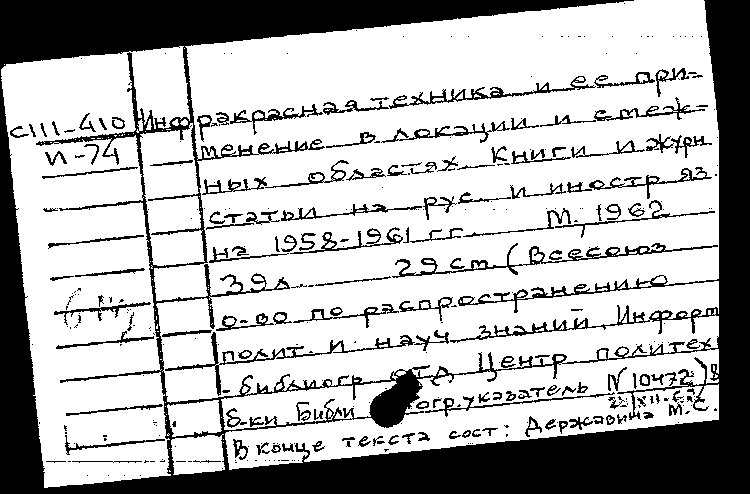 СIII-410 Инфракрасная техника и ее при-
И-74 менение в локации и смеж-
ных областях. Книги и журн
статьи на рус. и иностр яз.
на 1958-1961 гг. М., 1962
39л. 29 см (Всесоюз
о-во по распространению
полит. и науч знаний. Информ
-библиогр отд Центр политех
б-ки. Библиогр. указатель N 10472)
В конце текста сост: Державина М.С.